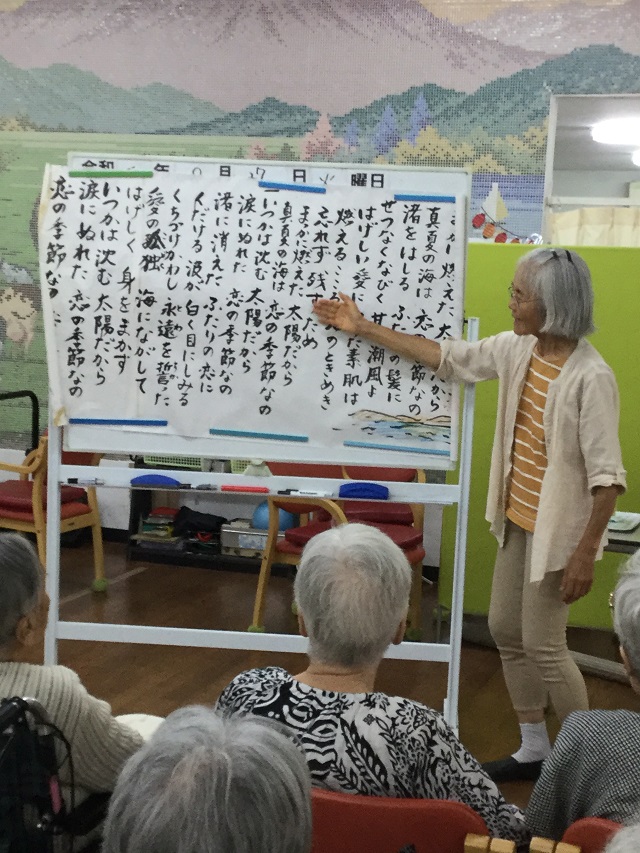 令和 年 月 日 火 曜日
燃えた 太 から
真夏の海は 恋の季節なの
渚をはしる ふた の髪に
せつなくなびく 甘 潮風よ
はげしい愛に た素肌は
燃える のときめき
忘れず 残すため
まっかに燃えた 太陽だから
真夏の海は 恋の季節なの
いつかは沈む 太陽だから
涙にぬれた 恋の季節なの
渚に消えた ふたりの恋に
くだける 波が 白く目にしみる
くちづけかわし 永遠を誓った
愛の孤独 海にながして
はげしく 身をまかす
いつかは沈む 太陽だから
涙にぬれた 恋の季節なの
恋の季節なの